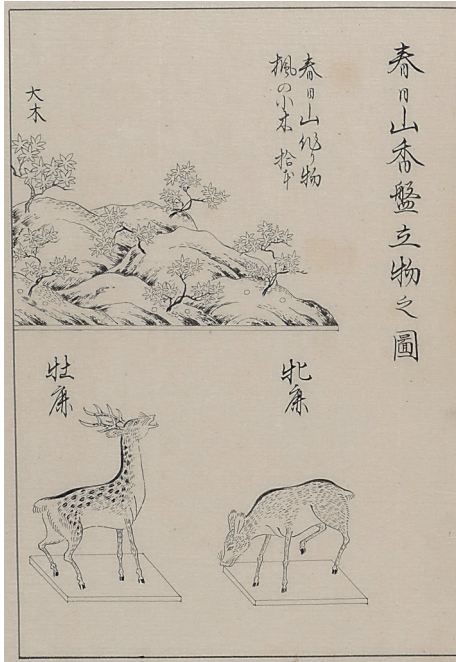 春日山香盤立物之圖
春日山作り物
楓の小木 拾本
大木
牝鹿
牡鹿